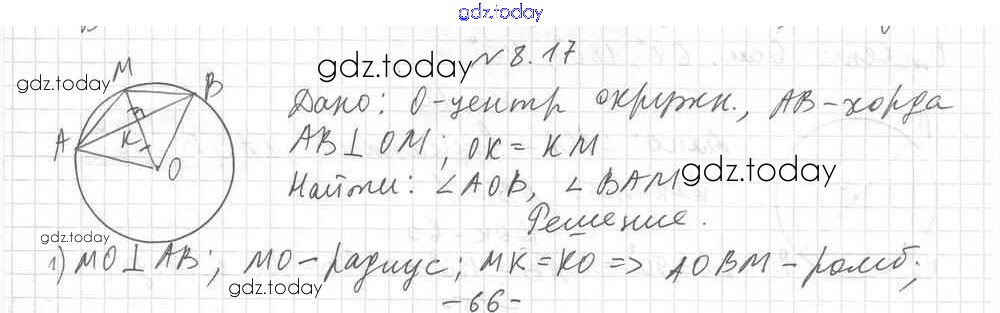 gdz.today
№ 8.17
gdz.today
gdz.today
M
B
A
K
O
Дано: O-центр окружн., AB-хорда
AB⊥OM; OK=KM
Найти: ∠AOB, ∠BAM
gdz.today
Решение.
gdz.today
1) MO⊥AB; MO-радиус; MK=KO => AOBM-ромб;
gdz.today
-66-